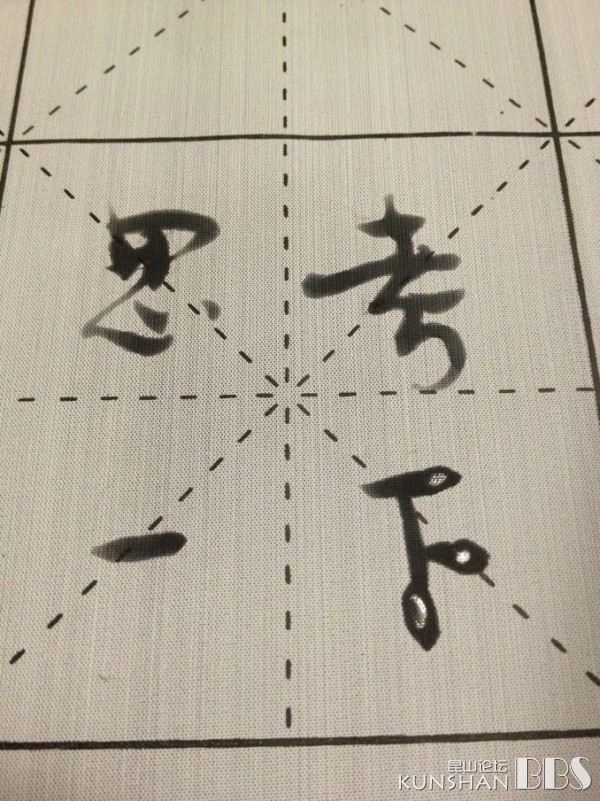 思考
一下
昆山论坛
KUNSHAN BBS